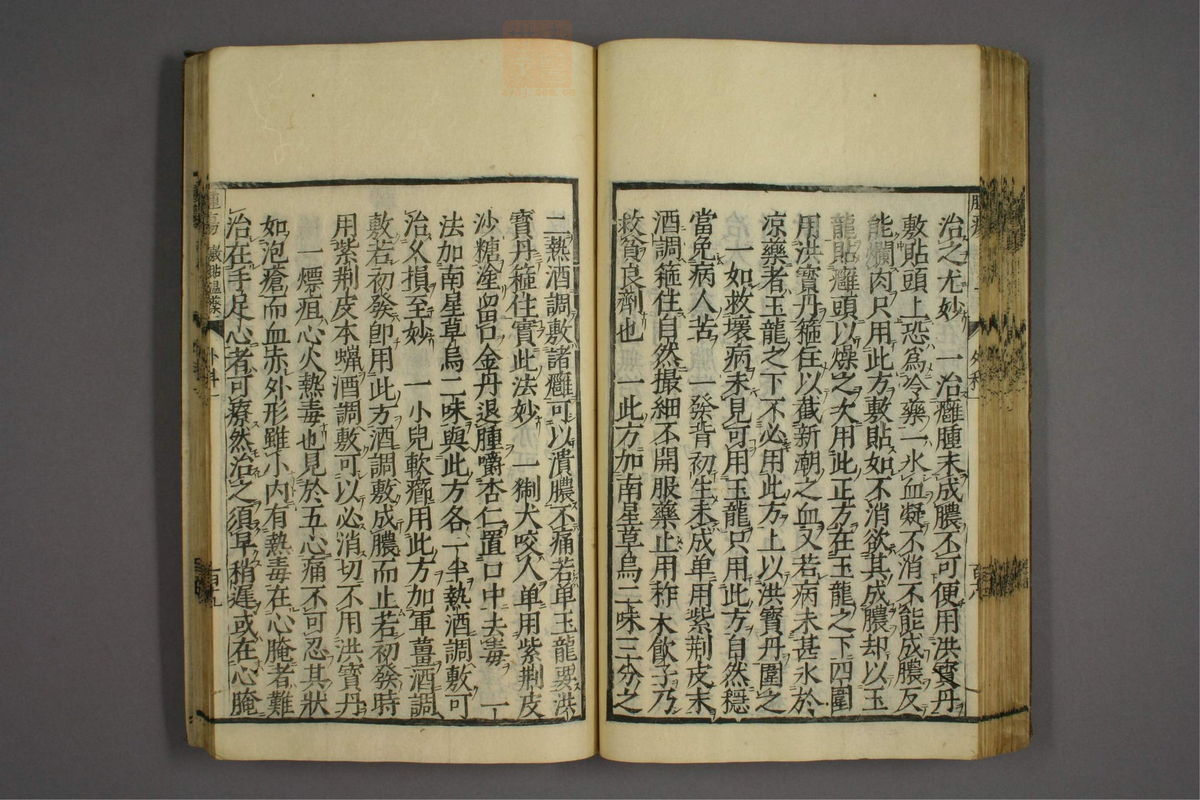 治之尤妙 一治癰腫未成膿不可便用洪寳丹
敷貼頭上恐為冷藥一氷血凝不消不能成膿反
能爛肉只用此方敷貼如不消欲其成膿却以玉
龍貼癰頭以燥之次用此正方在玉龍之下四圍
用洪寳丹箍住以截新潮之血又若病未甚氷於
凉藥者玉龍之下不必用此方上以洪寳丹圍之
一如救壞病未見可用玉龍只用此方自然穩
當免病人苦 一發背初生未成单用紫荆皮末
酒調箍住自然撮細不開服藥止用柞木飲子乃
救貧良劑也 一此方加南星草烏二味三分之
二熱酒調敷諸癰可以潰膿不痛若单玉龍要洪
寳丹箍住實此法妙 一猘犬咬人单用紫荆皮
沙糖塗留口金丹退腫嚼杏仁置口中去毒 一丁
法加南星草烏二味與此方各一半熱酒調敷可
治久損至妙 一小兒軟癤用此方加軍薑酒調
敷若初發卽用此方酒調敷成膿而止若初發時
用紫荆皮本蠟酒調敷可以必消切不用洪寳丹
一㷸疽心火熱毒也見於五心痛不可忍其狀
如泡瘡而血赤外形雖小内有熱毒在心腌者難
治在手足心者可療然治之須早稍遲或在心腌
外科一
百十九